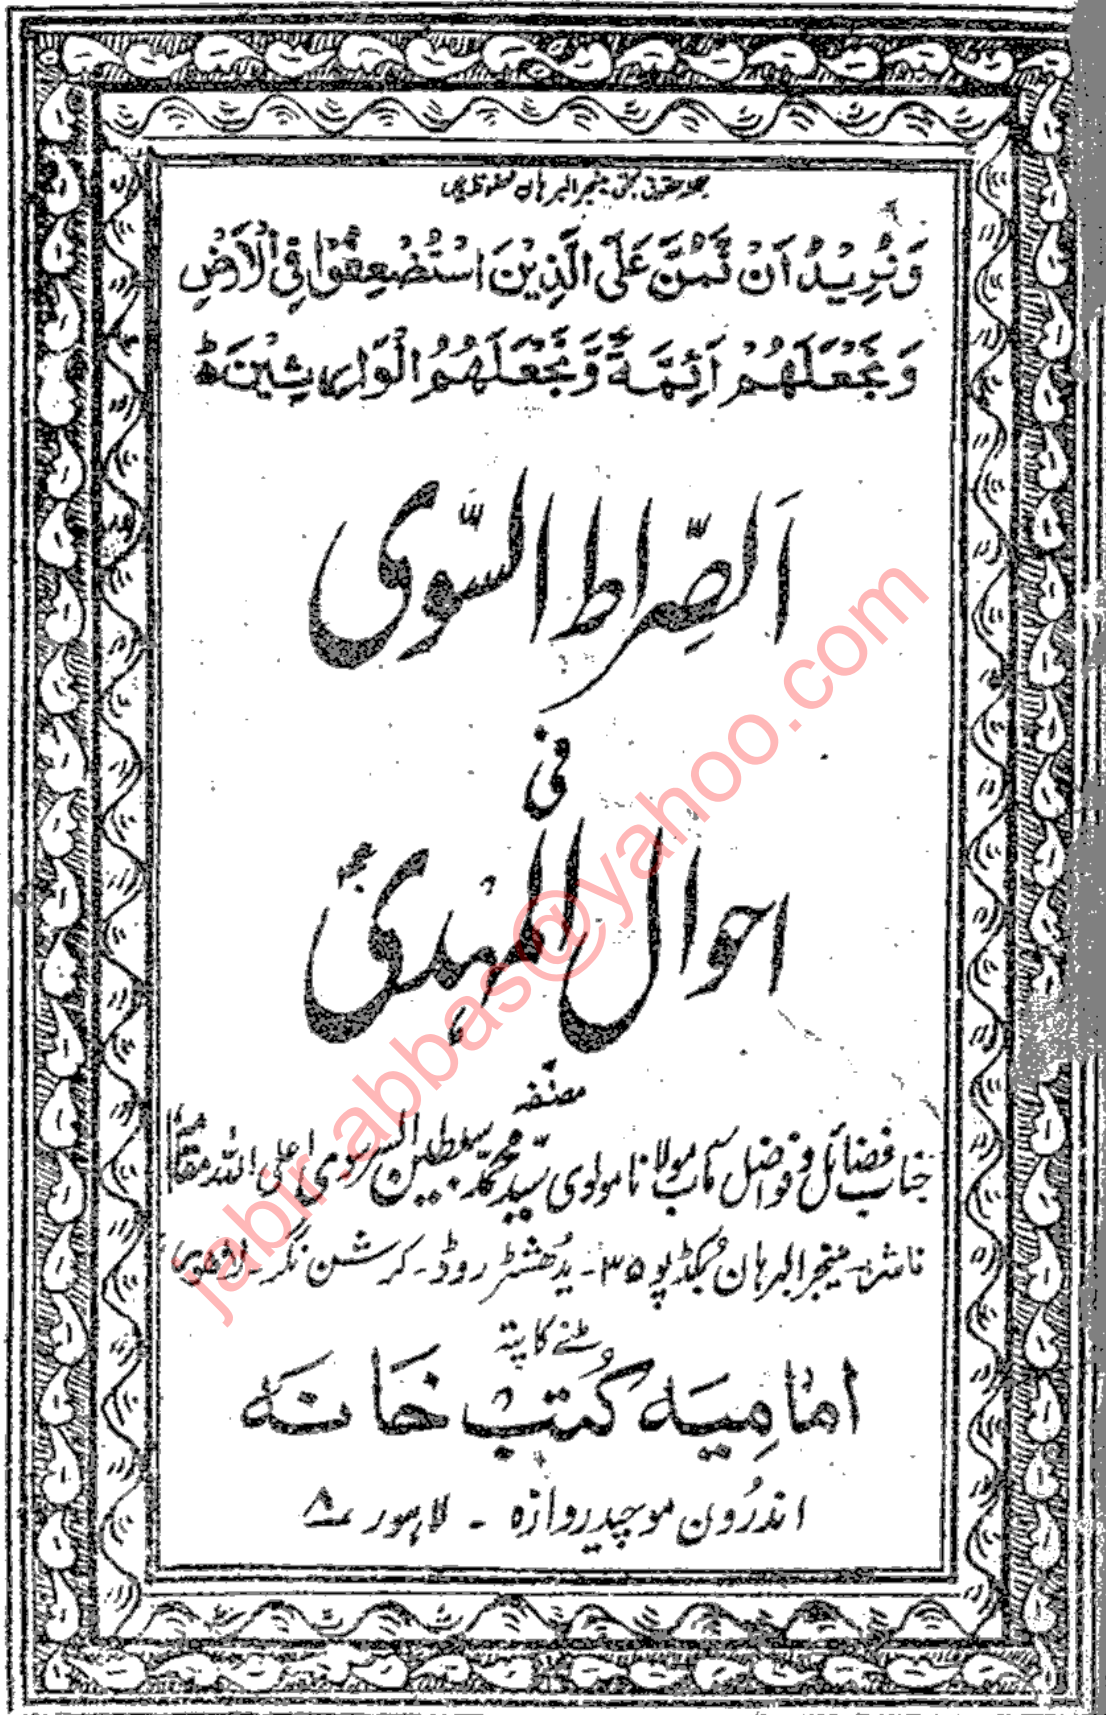 جملہ حقوق بحق منیجر البرہان محفوظ ہیں
وَنُرِيْدُ اَنْ نَّمُنَّ عَلَی الَّذِيْنَ اسْتُضْعِفُوْا فِی الْاَرْضِ
وَنَجْعَلَهُمْ اَئِمَّةً وَّنَجْعَلَهُمُ الْوَارِثِيْنَ ط
اَلصِّراط السَّوی
فی
احوال المہدیؑ
مصنفہ
جناب فضائل و فواضل مآب مولانا مولوی سیّد محمّد سبطین السرسوی اعلی اللہ مقامہٗ
ناشر۔ منیجر البرہان بُکڈپو ۳۵۔ یدُھشٹر روڈ۔ کرشن نگر۔ لاہور
ملنے کا پتہ
امامیہ کُتب خانہ
اندرُون موچیدروازہ ۔ لاہور ۸
jabir.abbas@yahoo.com